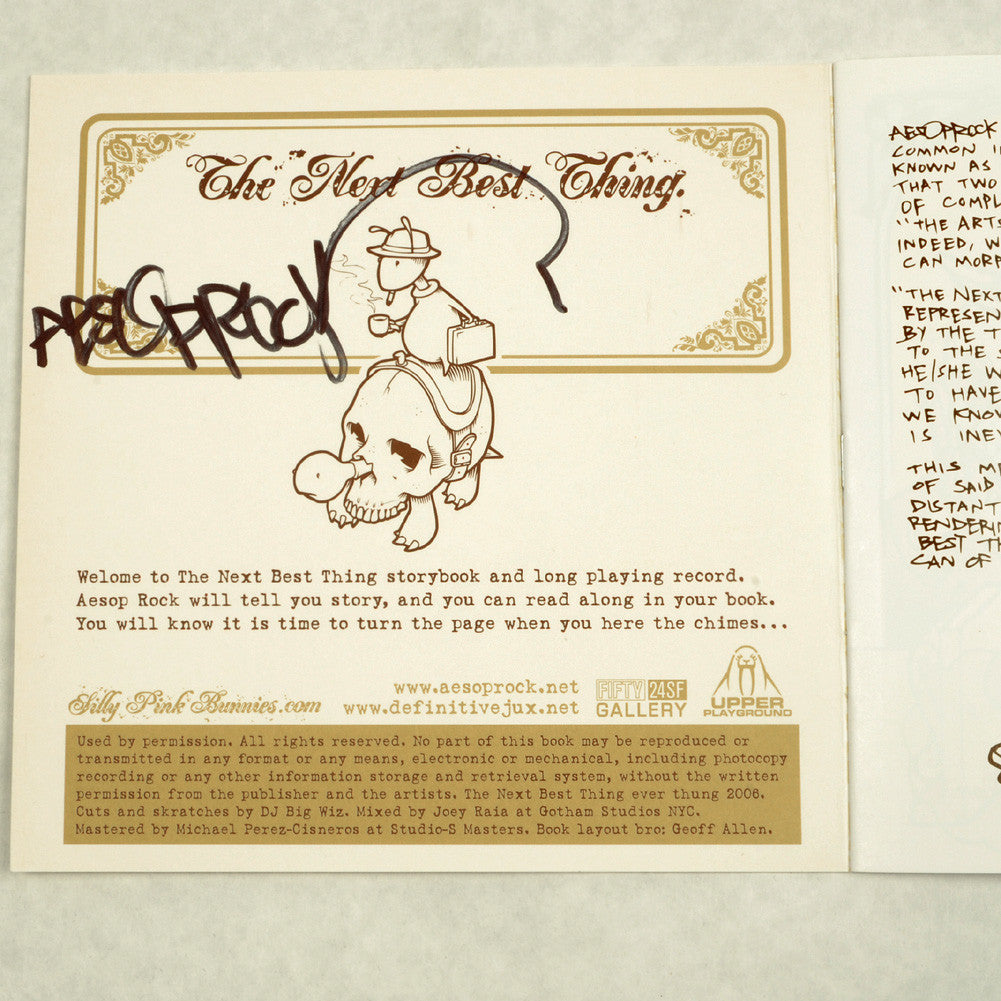 The Next Best Thing.
AESOPROCK
Welome to The Next Best Thing storybook and long playing record.
Aesop Rock will tell you story, and you can read along in your book.
You will know it is time to turn the page when you here the chimes...
Silly Pink Bunnies.com
www.aesoprock.net
www.definitivejux.net
FIFTY 24SF
GALLERY
UPPER
PLAYGROUND
Used by permission. All rights reserved. No part of this book may be reproduced or
transmitted in any format or any means, electronic or mechanical, including photocopy
recording or any other information storage and retrieval system, without the written
permission from the publisher and the artists. The Next Best Thing ever thung 2006.
Cuts and skratches by DJ Big Wiz. Mixed by Joey Raia at Gotham Studios NYC.
Mastered by Michael Perez-Cisneros at Studio-S Masters. Book layout bro: Geoff Allen.
AESOPROCK
COMMON
KNOWN AS
THAT TWO
OF
"THE ARTS
INDEED,
CAN
"THE NEXT
BY THE
TO THE
HE/SHE
TO HAVE
WE
IS
THIS
OF SAID
BEST
CAN OF